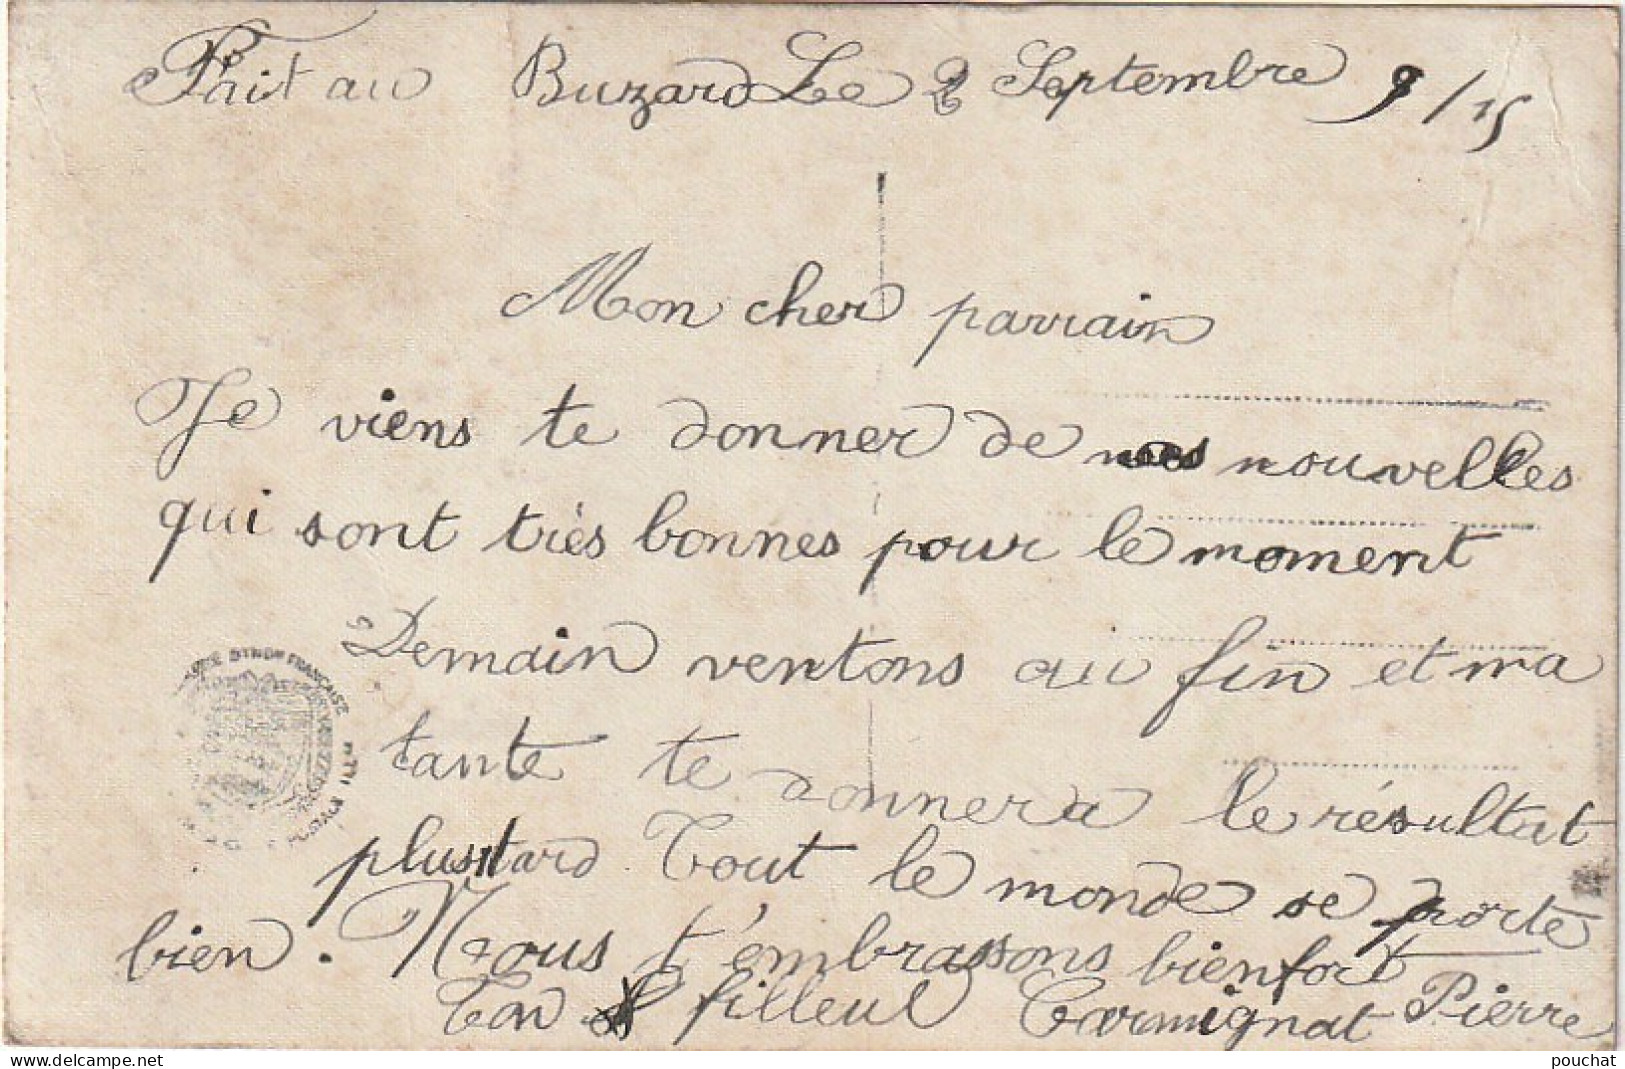 Fait au Buzard Le 2 Septembre 9/15
Mon cher parrain
Je viens te donner de mes nouvelles
qui sont très bonnes pour le moment
Demain ventons au fin et ma
tante te donnera le résultat
plus tard Tout le monde se porte
bien. Nous t'embrassons bien fort
Ton filleul Carmignat Pierre
FRANÇAISE
pouchat
www.delcampe.net